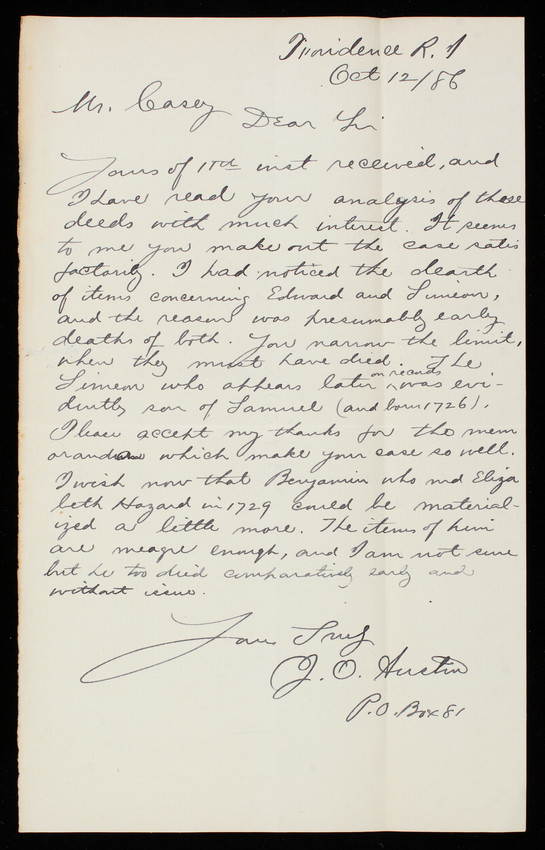 Providence R. I
Oct 12/86
Mr. Casey
Dear Sir
Yours of 11th inst received, and
I have read your analysis of these
deeds with much interest. It seems
to me you make out the case satis
factorily. I had noticed the dearth
of items concerning Edward and Simeon,
and the reason was presumably early
deaths of both. You narrow the limit,
when they must have died. The
Simeon who appears later on records was evi-
dently son of Samuel (and born 1726).
Please accept my thanks for the mem
orandum which make your case so well.
I wish now that Benjamin who md Eliza
beth Hazard in 1729 could be material-
ized a little more. The items of him
are meagre enough, and I am not sure
but he too died comparatively early and
without issue.
Yours Truly
J. O. Austin
P.O. Box 81